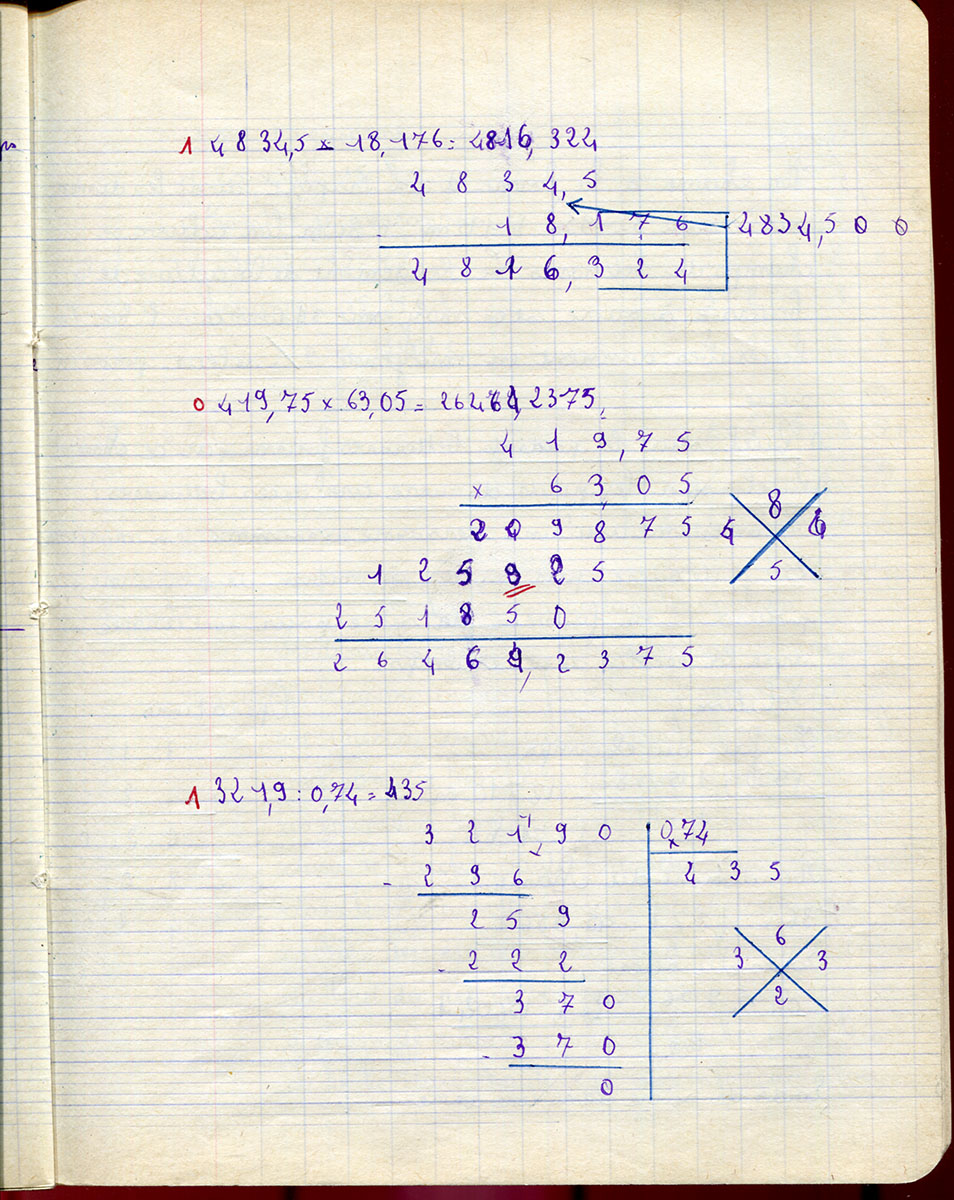 1 4834,5 - 18,176 = 4816,324
4 8 3 4,5
- 1 8,1 7 6 4834,5 0 0
4 8 1 6,3 2 4
0 419,75 x 63,05 = 26464,2375
4 1 9,7 5
x 6 3,0 5
2 0 9 8 7 5
1 2 5 9 2 5
2 5 1 8 5 0
2 6 4 6 4,2 3 7 5
8
5
1 321,9 : 0,74 = 435
3 2 1 9 0 0,74
- 2 9 6 4 3 5
2 5 9
- 2 2 2
3 7 0
- 3 7 0
0
6
3 3
2